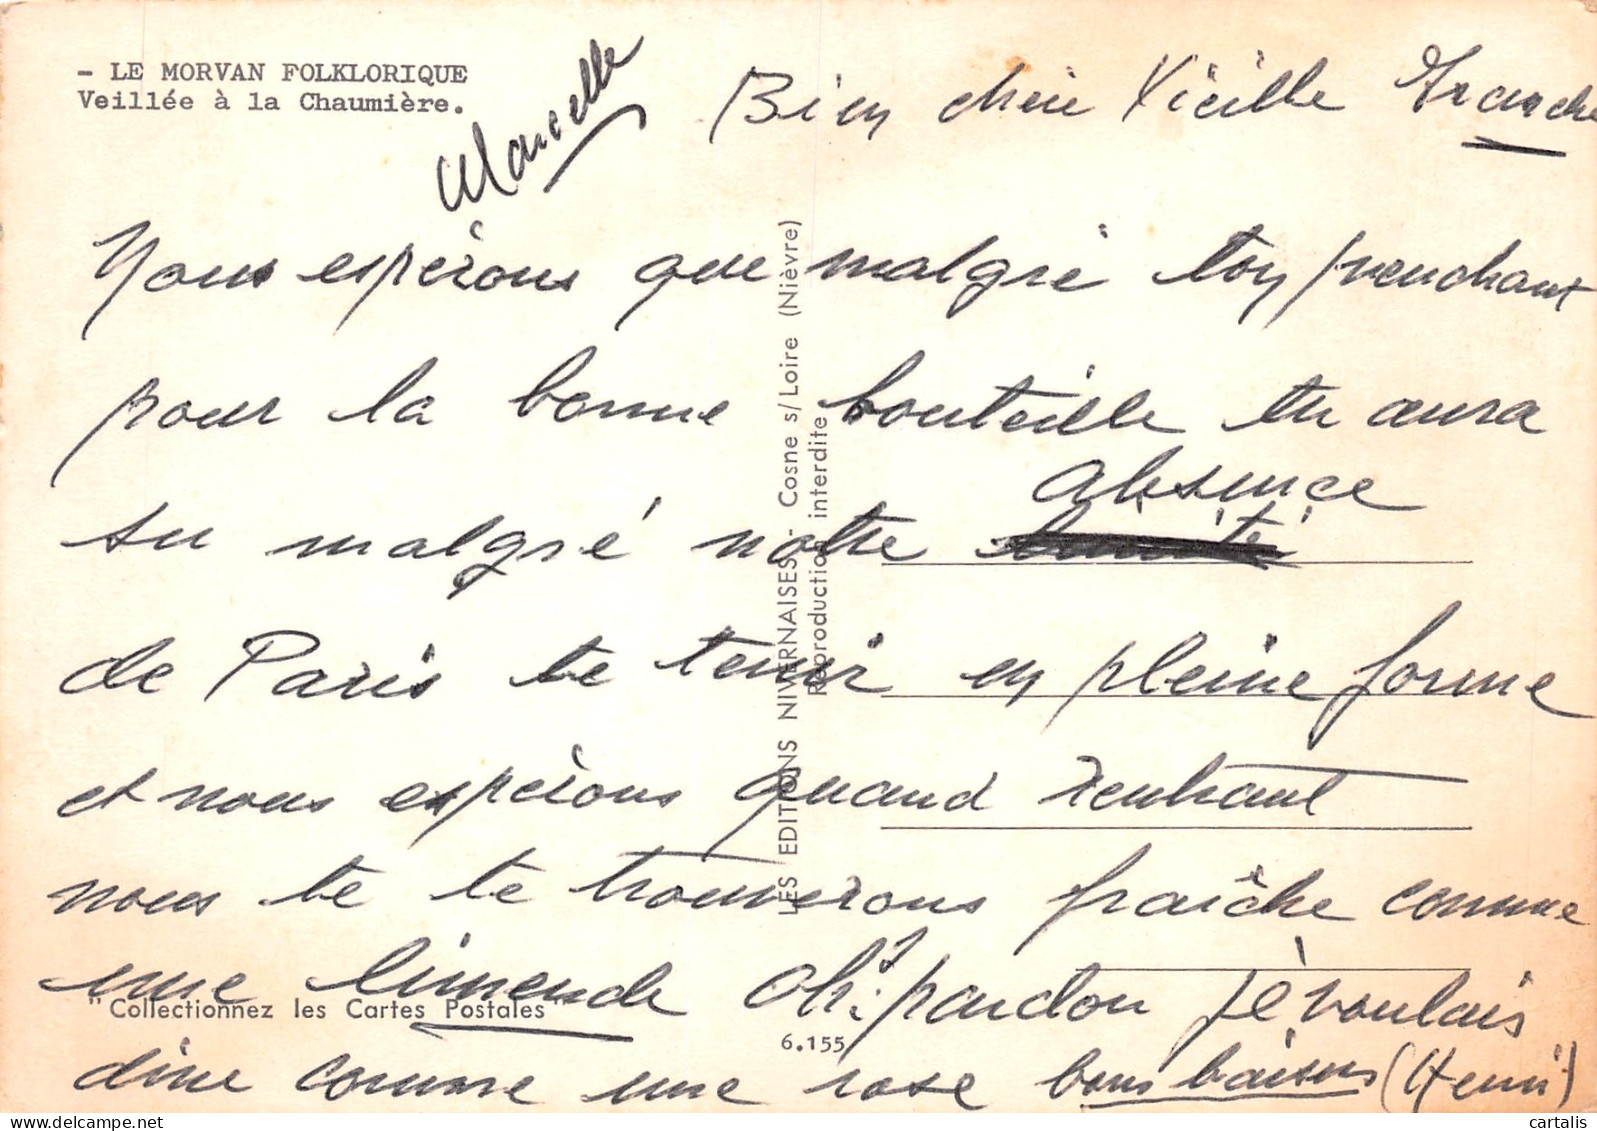 - LE MORVAN FOLKLORIQUE
Veillée à la Chaumière.
Marcelle
Bien chère Vieille Branche
Nous espérons que malgré ton penchant
pour la bonne bouteille tu aura
absence
su malgré notre
de Paris te tenir en pleine forme
et nous espérons quand rentrant
nous te te trouverons fraîche comme
une limende oh! pardon je voulais
dire comme une rose bons baisers (Henri)
LES EDITIONS NIVERNAISES - Cosne s/Loire (Nièvre)
Reproduction interdite
"Collectionnez les Cartes Postales"
6.155
cartalis